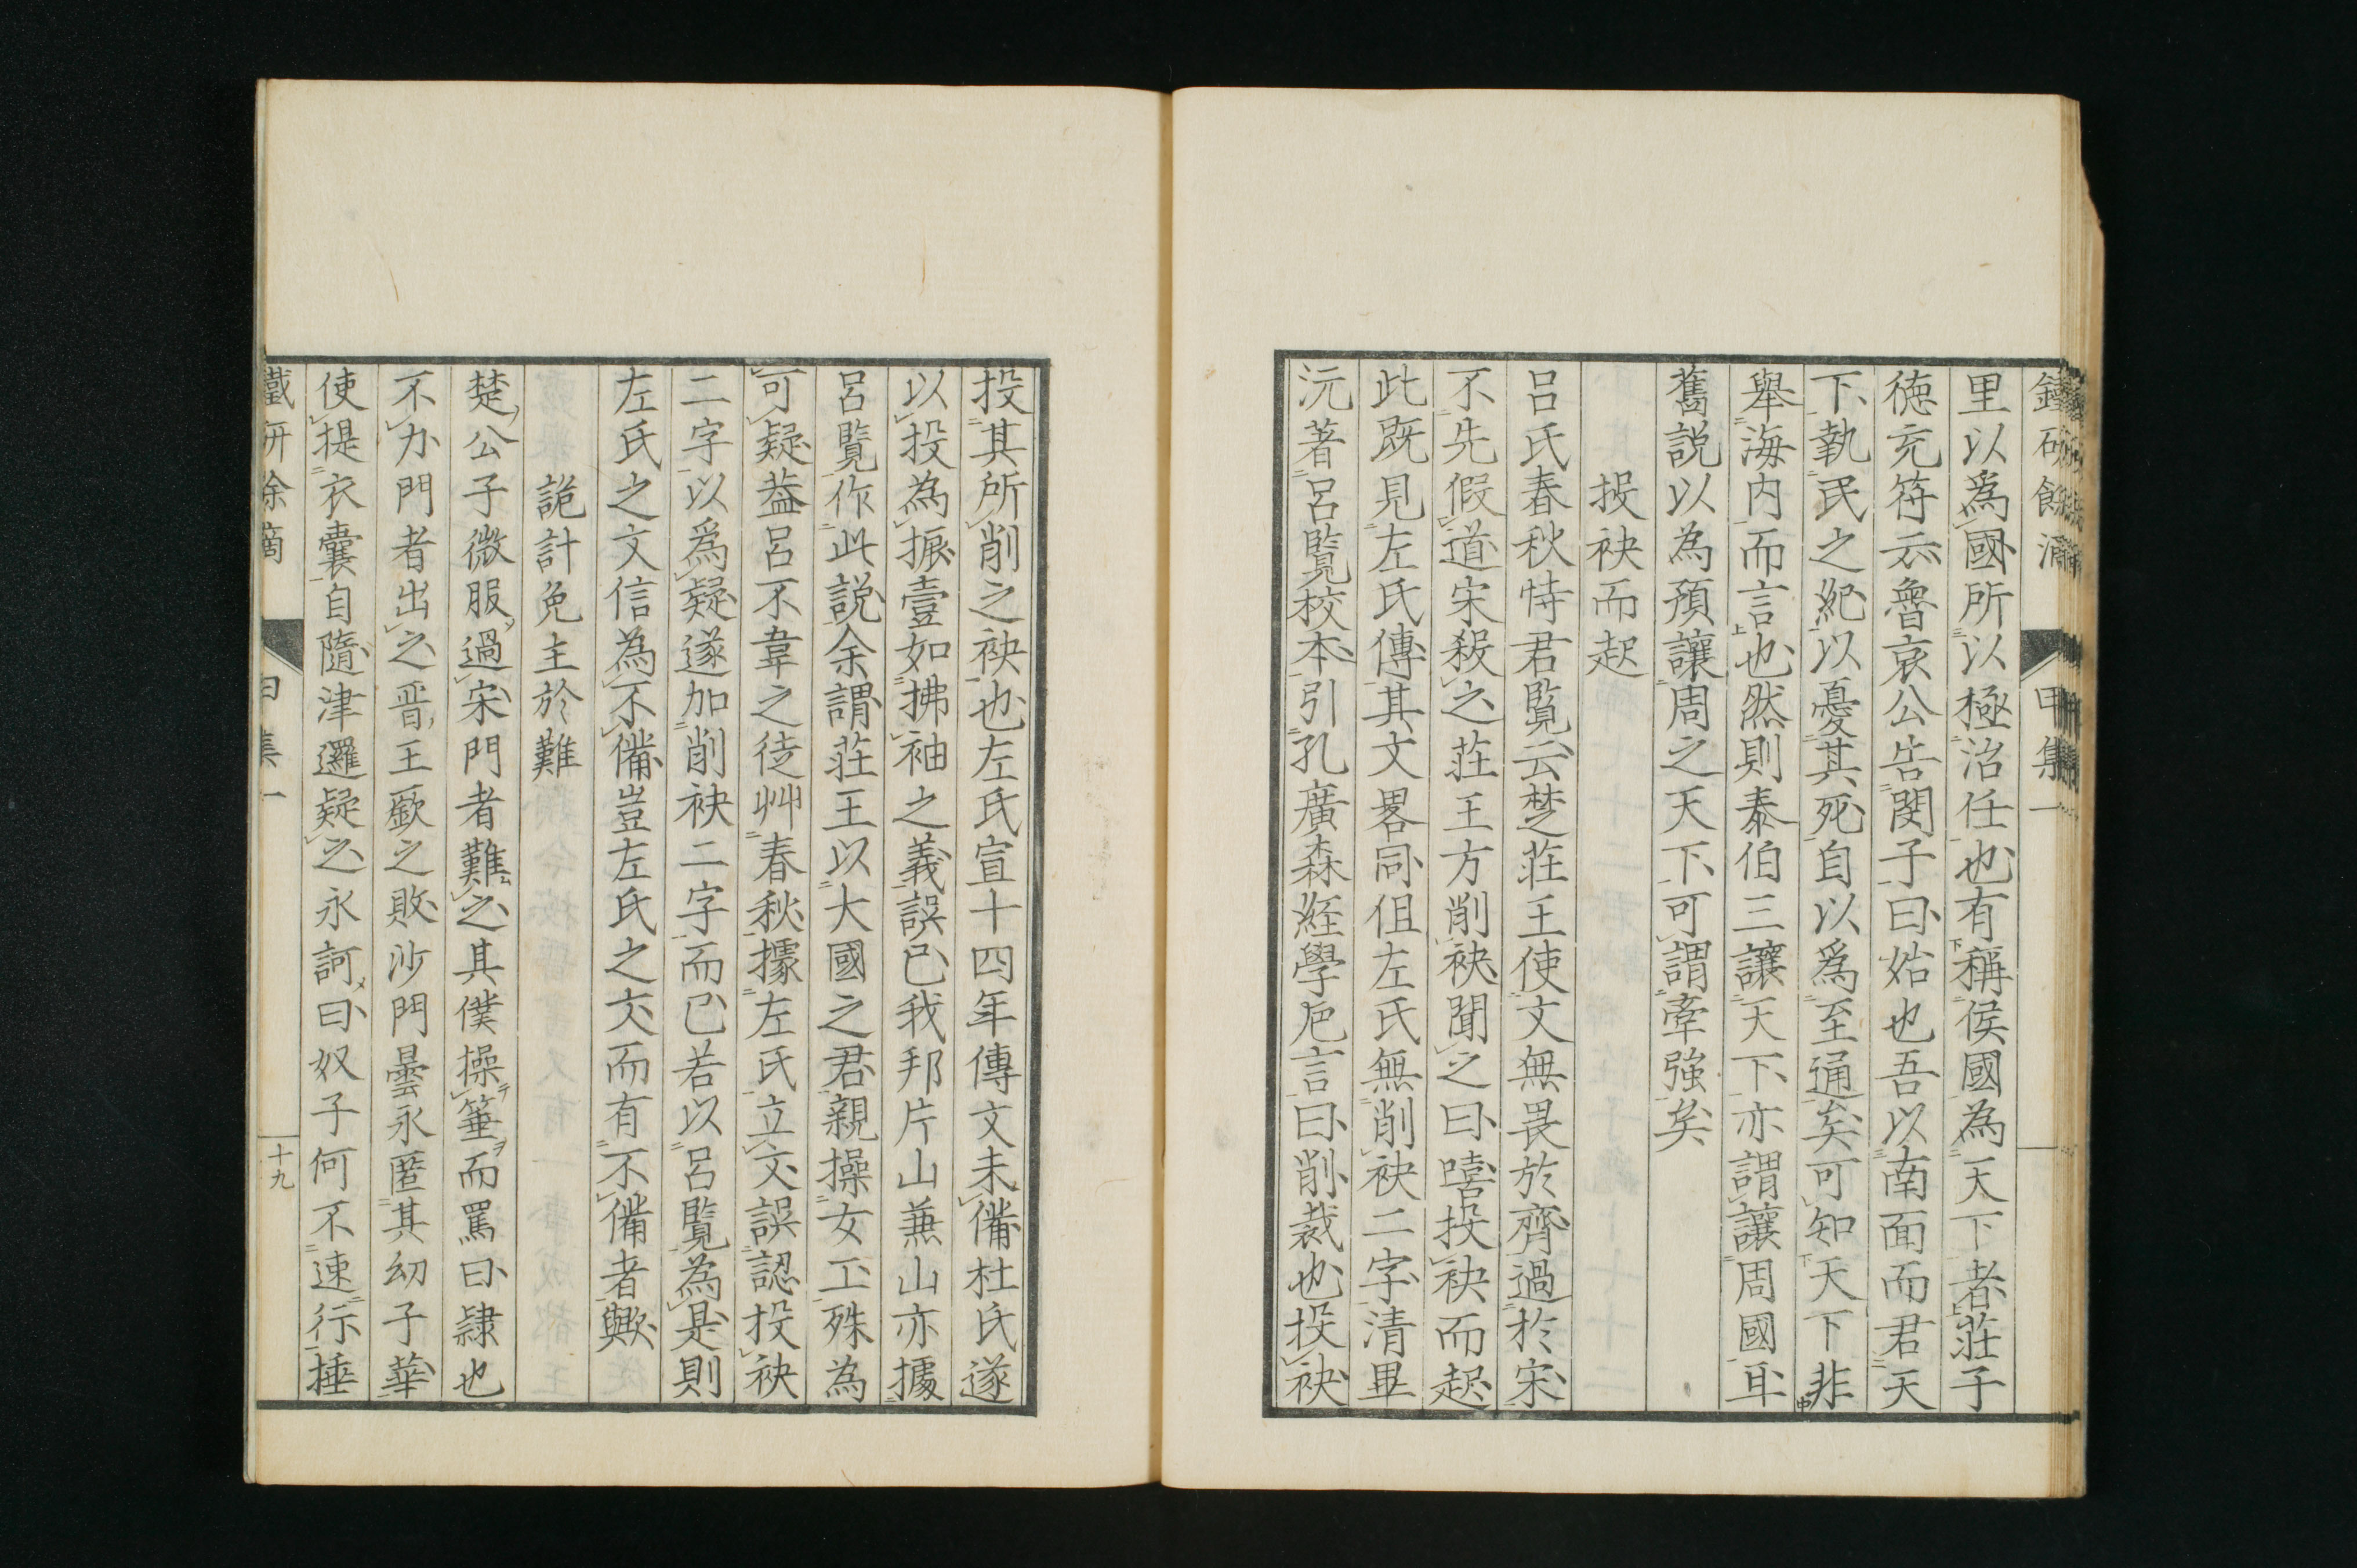 里以爲國所以極治任也有稱侯國為天下者莊子
徳充符云魯哀公告閔子曰始也吾以南面而君天
下執民之紀以憂其死自以爲至通矣可知天下非
舉海内而言也然則泰伯三讓天下亦謂讓周國耳
舊説以為預讓周之天下可謂牽強矣
投袂而起
呂氏春秋恃君覧云楚莊王使文無畏於齊過於宋
不先假道宋殺之莊王方削袂聞之曰嘻投袂而起
此既見左氏傳其文畧同但左氏無削袂二字清畢
沅著呂覧校本引孔廣森經學卮言曰削裁也投袂
投其所削之袂也左氏宣十四年傳文未備杜氏遂
以投為振壹如拂袖之義誤已我邦片山兼山亦據
呂覧作此説余謂莊王以大國之君親操女工殊為
可疑葢呂不韋之徒艸春秋據左氏立文誤認投袂
二字以爲疑遂加削袂二字而已若以呂覧為是則
左氏之文信為不備豈左氏之文而有不備者歟
詭計免主於難
楚公子微服過宋門者難之其僕操箠而罵曰隷也
不力門者出之晋王歘之敗沙門曇永匿其幼子華
使提衣囊自隨津邏疑之永訶曰奴子何不速行捶
鐵研餘滴 甲集一 十九